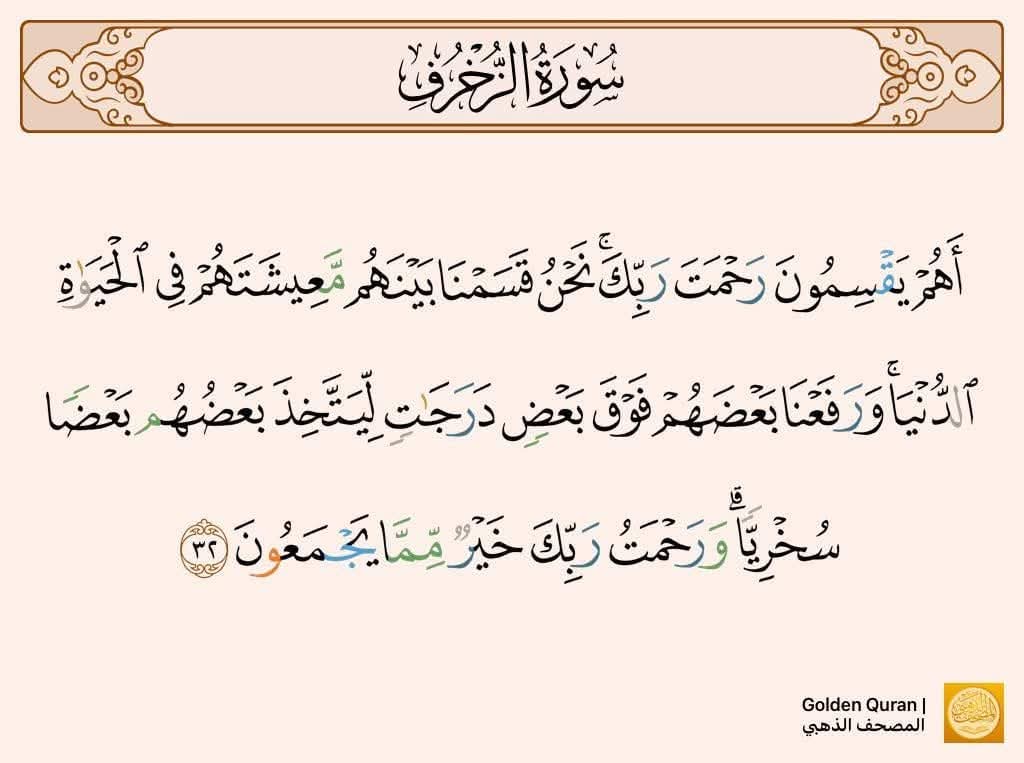 سُورَةُ الزُّخْرُفِ
أَهُمْ يَقْسِمُونَ رَحْمَتَ رَبِّكَ ۚ نَحْنُ قَسَمْنَا بَيْنَهُم مَّعِيشَتَهُمْ فِي ٱلْحَيَوٰةِ
ٱلدُّنْيَا ۚ وَرَفَعْنَا بَعْضَهُمْ فَوْقَ بَعْضٍ دَرَجَٰتٍ لِّيَتَّخِذَ بَعْضُهُم بَعْضًا
سُخْرِيًّا ۗ وَرَحْمَتُ رَبِّكَ خَيْرٌ مِّمَّا يَجْمَعُونَ ٣٢
Golden Quran |
المصحف الذهبي